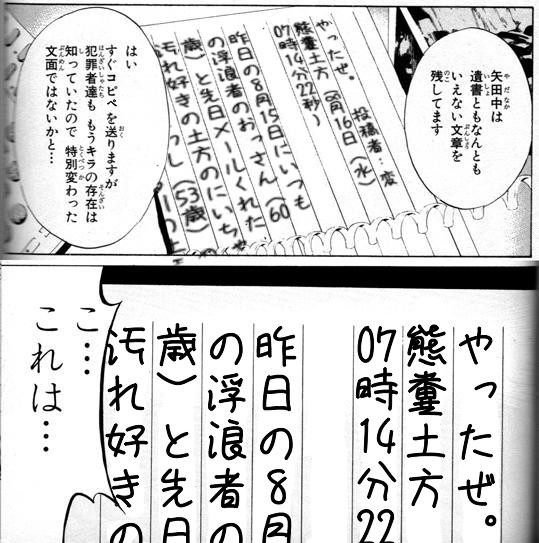 矢田中は
遺書ともなんとも
いえない文章を
残してます
やったぜ。 投稿者:変
熊糞土方 (8月16日 (水)
07時14分22秒)
昨日の8月15日にいつも
の浮浪者のおっさん (60
歳) と先日メールくれた
汚れ好きの土方のにいちゃ
(53歳)
はい
すぐコピペを送りますが
犯罪者達も もうキラの存在は
知っていたので 特別変わった
文面ではないかと…
やったぜ。
熊糞土方
07時14分22
昨日の8月
の浮浪者の
歳) と先日
汚れ好きの
こ…
これは…